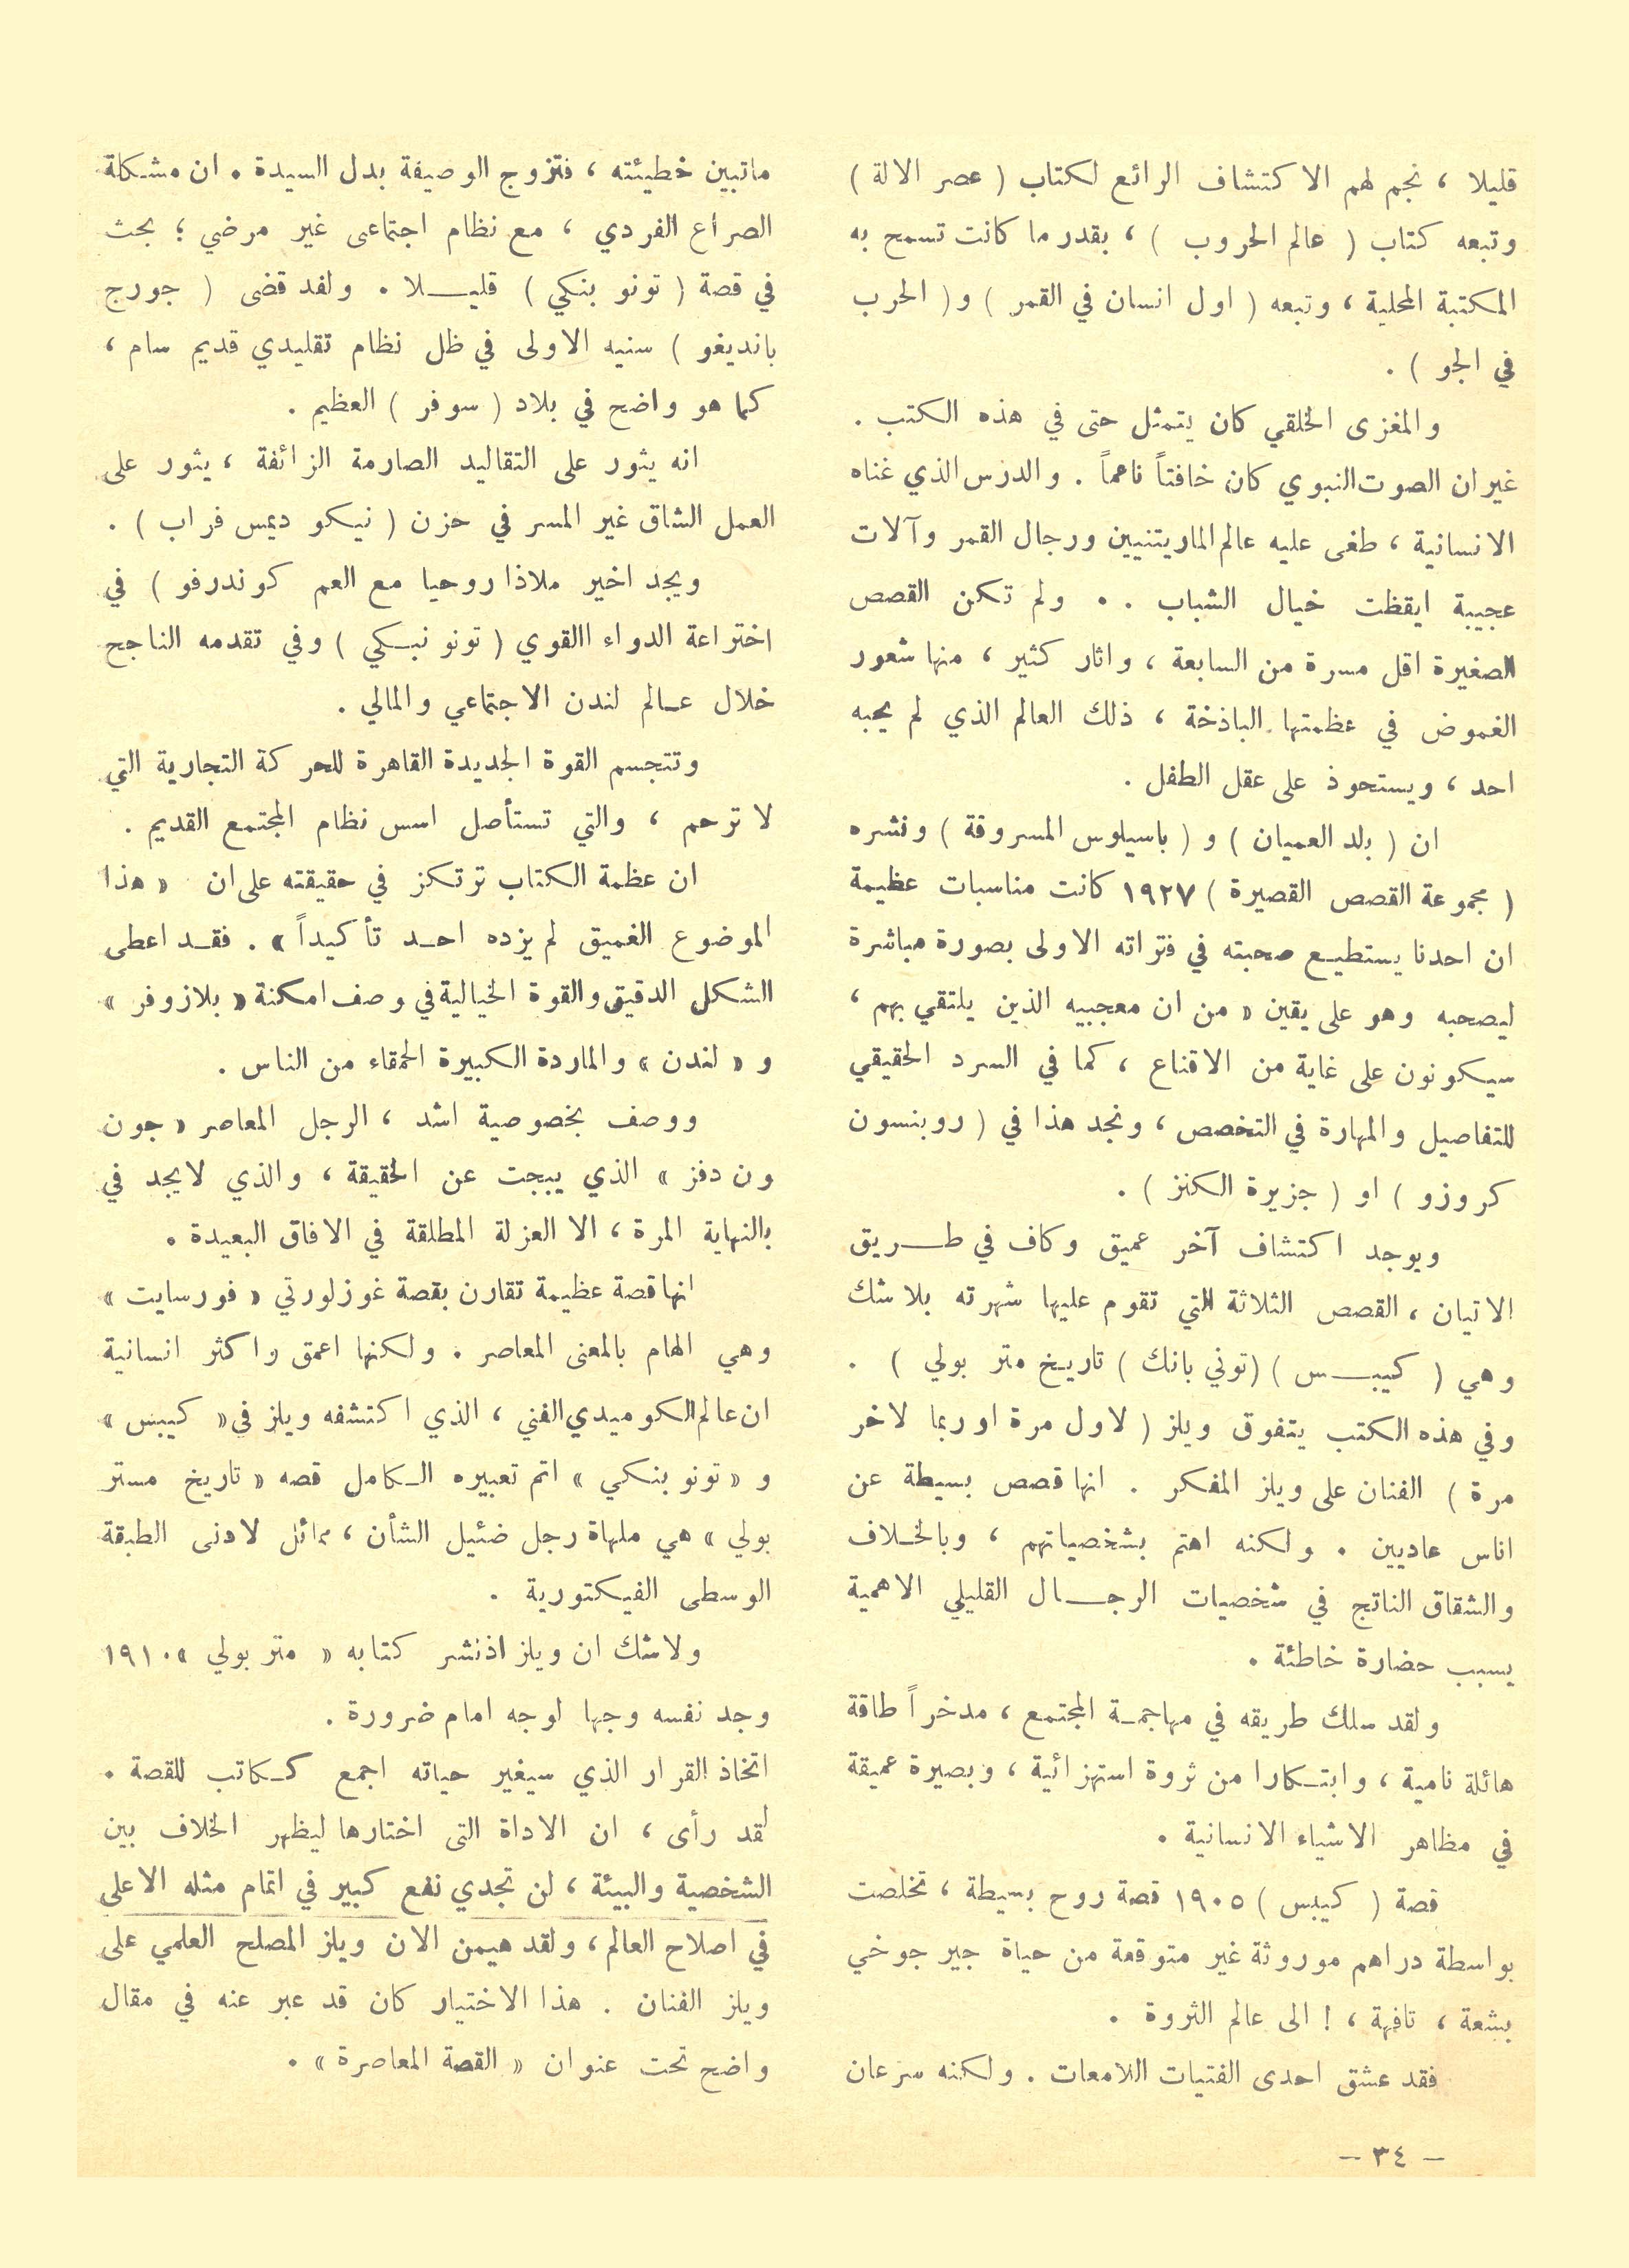 قليلا ، نجم لهم الاكتشاف الرائع لكتاب ( عصر الالة )
وتبعه كتاب ( عالم الحروب ) ، بقدر ما كانت تسمح به
المكتبة المحلية ، وتبعه ( اول انسان في القمر ) و( الحرب
في الجو ) .
والمغزى الخلقي كان يتمثل حتى في هذه الكتب .
غير ان الصوت النبوي كان خافتاً ناعماً . والدرس الذي غناه
الانسانية ، طغى عليه عالم الماريتنيين ورجال القمر وآلات
عجيبة ايقظت خيال الشباب . . ولم تكن القصص
الصغيرة اقل مسرة من السابعة ، واثار كثير ، منها شعور
الغموض في عظمتها الباذخة ، ذلك العالم الذي لم يحبه
احد ، ويستحوذ على عقل الطفل .
ان ( بلد العميان ) و ( باسيلوس المسروقة ) ونشره
( مجموعة القصص القصيرة ) ١٩٢٧ كانت مناسبات عظيمة
ان احدنا يستطيع صحبته في فتراته الاولى بصورة مباشرة
ليصحبه وهو على يقين « من ان معجبيه الذين يلتقي بهم ،
سيكونون على غاية من الاقناع ، كما في السرد الحقيقي
للتفاصيل والمهارة في التخصص ، ونجد هذا في ( روبنسون
كروزو ) او ( جزيرة الكنز ) .
ويوجد اكتشاف آخر عميق وكاف في طريق
الاتيان ، القصص الثلاثة التي تقوم عليها شهرته بلا شك
وهي ( كيبس ) (توني بانك ) تاريخ متر بولي ) .
وفي هذه الكتب يتفوق ويلز ( لاول مرة او ربما لاخر
مرة ) الفنان على ويلز المفكر . انها قصص بسيطة عن
اناس عاديين . ولكنه اهتم بشخصياتهم ، وبالخلاف
والشقاق الناتج في شخصيات الرجال القليلي الاهمية
يسبب حضارة خاطئة .
ولقد سلك طريقه في مهاجمة المجتمع ، مدخراً طاقة
هائلة نامية ، وابتكارا من ثروة استهزائية ، وبصيرة عميقة
في مظاهر الاشياء الانسانية .
قصة ( كيبس ) ١٩٠٥ قصة روح بسيطة ، تخلصت
بواسطة دراهم موروثة غير متوقعة من حياة جير جوخي
بشعة ، تافهة ، ! الى عالم الثروة .
فقد عشق احدى الفتيات اللامعات . ولكنه سرعان
ماتبين خطيئته ، فتزوج الوصيفة بدل السيدة . ان مشكلة
الصراع الفردي ، مع نظام اجتماعى غير مرضي ؛ بحث
في قصة ( تونو بنكي ) قليلا . ولقد قضى ( جورج
بانديغو ) سنيه الاولى في ظل نظام تقليدي قديم سام ،
كما هو واضح في بلاد ( سوفر ) العظيم .
انه يثور على التقاليد الصارمة الزائفة ، يثور على
العمل الشاق غير المسر في حزن ( نيكو ديمس فراب ) .
ويجد اخير ملاذا روحيا مع العم كوندرفو ) في
اختراعة الدواء االقوي ( تونو نبكي ) وفي تقدمه الناجح
خلال عالم لندن الاجتماعي والمالي .
وتتجسم القوة الجديدة القاهرة للحركة التجارية التي
لا ترحم ، والتي تستأصل اسس نظام المجتمع القديم .
ان عظمة الكتاب ترتكز في حقيقته على ان « هذا
الموضوع الغميق لم يزده احد تأكيداً » . فقد اعطى
الشكل الدقيق والقوة الخيالية في وصف امكنة « بلازوفر »
و « لندن » والماردة الكبيرة الحمقاء من الناس .
ووصف بخصوصية اشد ، الرجل المعاصر « جون
ون دفز » الذي يبجت عن الحقيقة ، والذي لايجد في
بالنهاية المرة ، الا العزلة المطلقة في الافاق البعيدة .
انها قصة عظيمة تقارن بقصة غوزلورتي « فورسايت »
وهي الهام بالمعنى المعاصر . ولكنها اعمق واكثر انسانية
ان عالم الكوميدي الفني ، الذي اكتشفه ويلز في « كيبس »
و « تونو بنكي » اتم تعبيره الكامل قصه « تاريخ مستر
بولي » هي ملهاة رجل ضئيل الشأن ، مماثل لادنى الطبقة
الوسطى الفيكتورية .
ولاشك ان ويلز اذنشر كتابه « متر بولي » ١٩١٠
وجد نفسه وجها لوجه امام ضرورة .
اتخاذ القرار الذي سيغير حياته اجمع ككاتب للقصة .
لقد رأى ، ان الاداة التى اختارها ليظهر الخلاف بين
الشخصية والبيئة ، لن تجدي نفع كبير في اتمام مثله الاعلى
في اصلاح العالم ، ولقد هيمن الان ويلز المصلح العلمي على
ويلز الفنان . هذا الاختيار كان قد عبر عنه في مقال
واضح تحت عنوان « القصة المعاصرة » .
- ٣٤ -